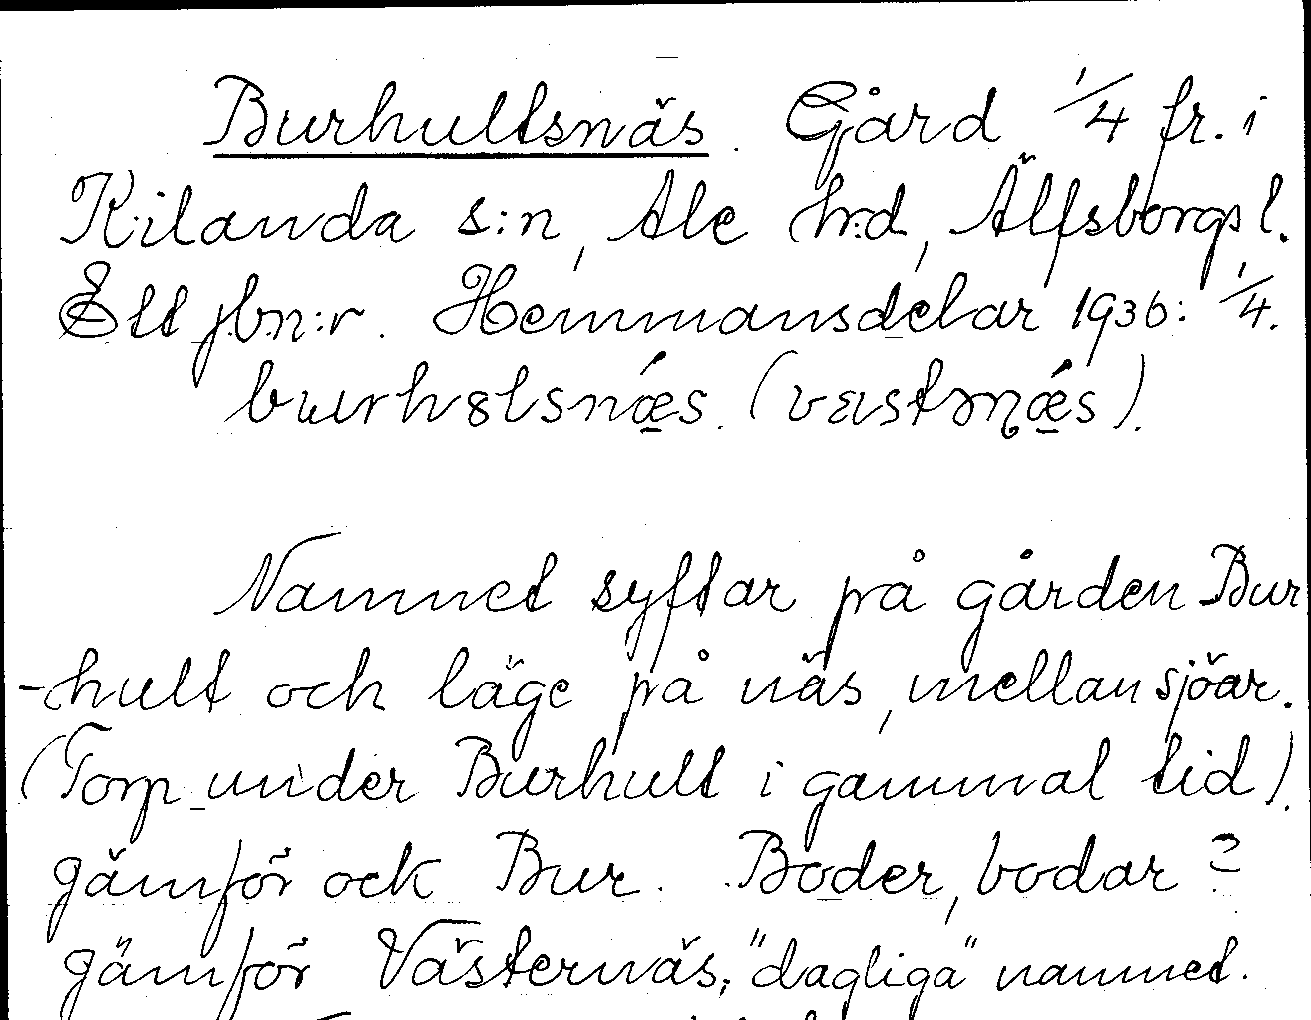 Burhultsnäs. Gård 1/4 fr. i
Kilanda s:n, Ale h:d, Älfsborgs l.
Ett jbn:r. Hemmansdelar 1936: 1/4.
burhɵltsnǽs. (vɛstənǽs).
Namnet syftar på gården Bur
-hult och läge på näs, mellan sjöar.
(Torp under Burhult i gammal tid).
gämför ock Bur. Boder, bodar?
gämför Västernäs, "dagliga" namnet.